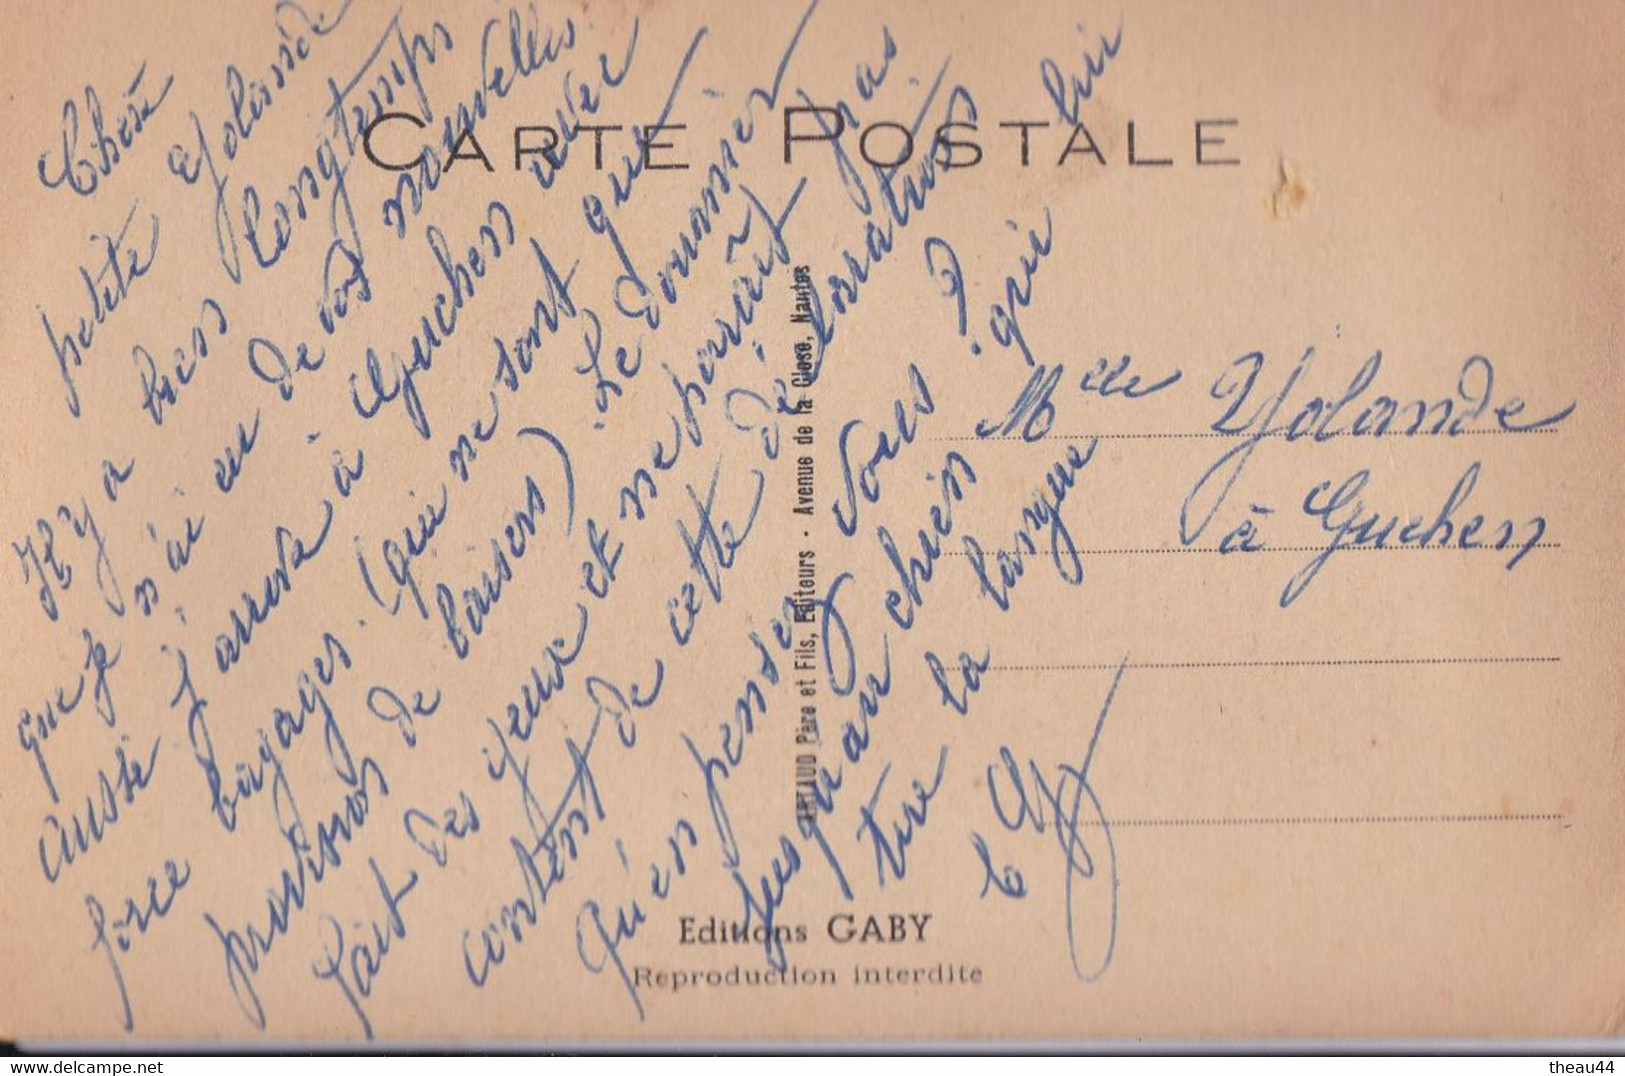 CARTE POSTALE
Chère
petite Yolande
Il y a bien longtemps
que je n'ai eu de vos nouvelles.
aussi j'arrive à Guchen avec
force bagages. (qui ne sont que
provisions de baisers). Le douanier
fait des yeux et ne paraît pas
content de cette déclaration
Qu'en pensez vous ?
jusqu'au chien qui lui
tire la langue
Mlle Yolande
à Guchen
ARTAUD Père et Fils, Editeurs - Avenue de la Close, Nantes
Editions GABY
Reproduction interdite
theau44